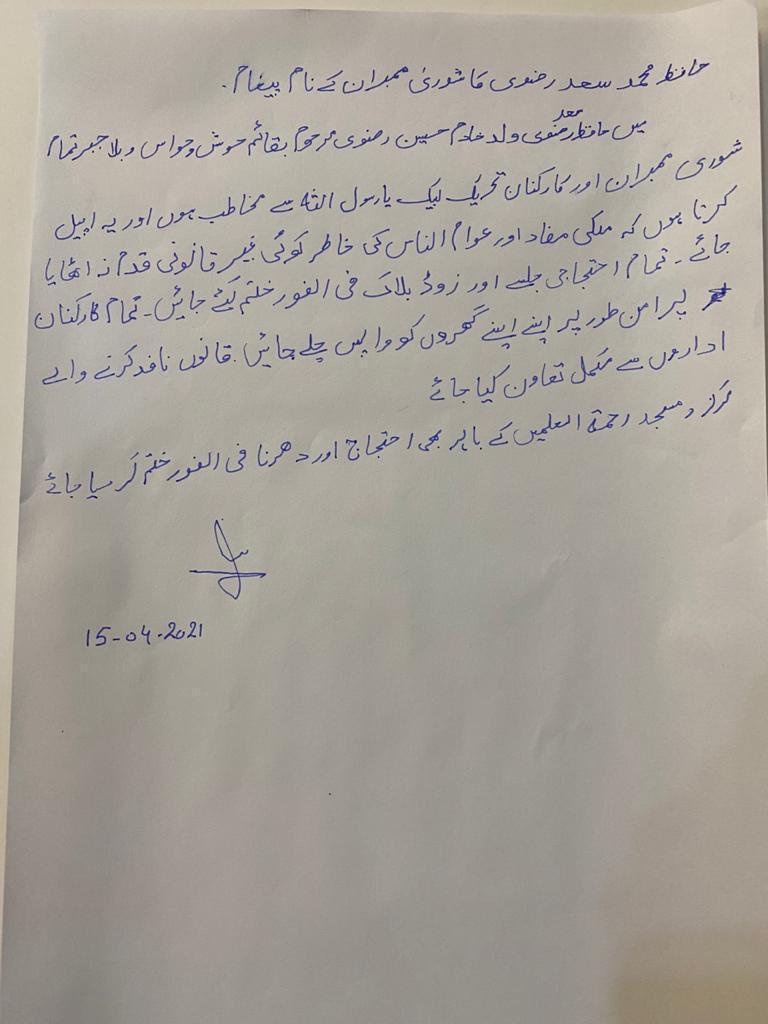 حافظ محمد سعد رضوی کا شوریٰ ممبران کے نام پیغام.
میں حافظ سعد رضوی ولد خادم حسین رضوی مرحوم بقائم حوش وحواس و بلا جبر تمام
شوری ممبران اور کارکنان تحریک لبیک یا رسول اللہ سے مخاطب ہوں اور یہ اپیل
کرتا ہوں کہ ملکی مفاد اور عوام الناس کی خاطر کوئی غیر قانونی قدم نہ اٹھایا
جائے - تمام احتجاجی جلسے اور روڈ بلاک فی الفور ختم کئے جائیں - تمام کارکنان
پر امن طور پر اپنے اپنے گھروں کو واپس چلے جائیں. قانون نافد کرنے والے
اداروں سے مکمل تعاون کیا جائے
مرکز و مسجد رحمۃ العلمین کے باہر بھی احتجاج اور دھرنا فی الفور ختم کر دیا جائے
15-04-2021